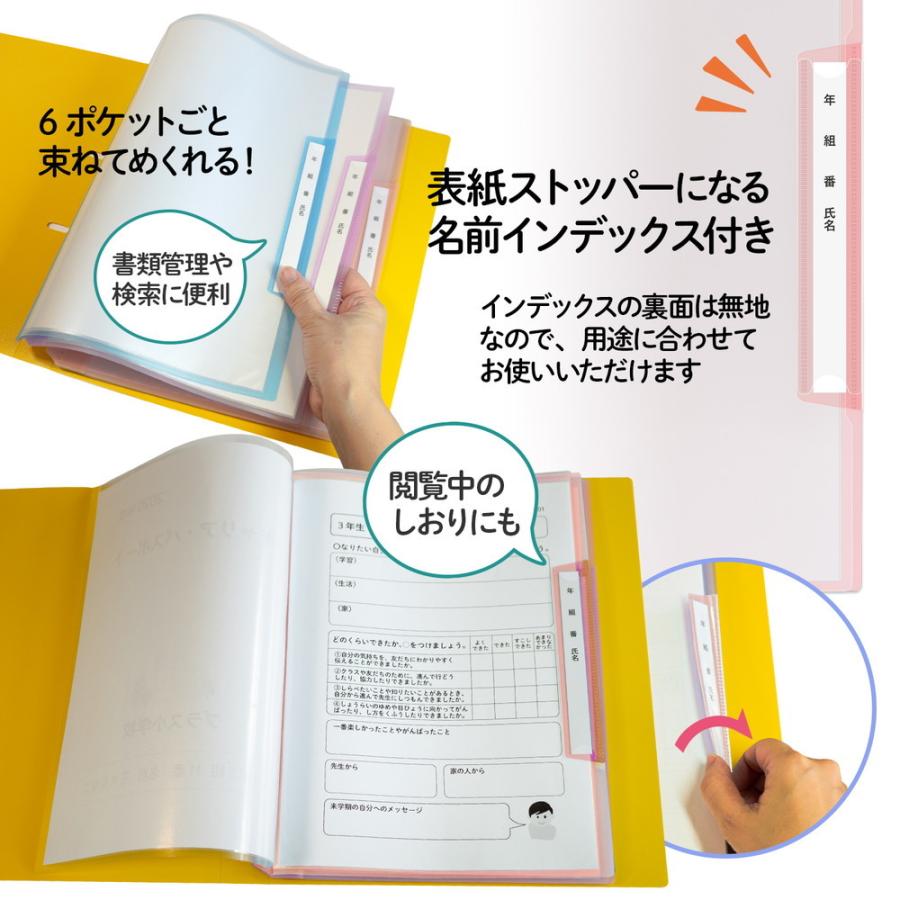 6ポケットごと
束ねてめくれる!
書類管理や
検索に便利
年 組 番 氏名
年 組 番 氏名
年 組 番 氏名
表紙ストッパーになる
名前インデックス付き
インデックスの裏面は無地
なので、用途に合わせて
お使いいただけます
年 組 番 氏名
閲覧中の
しおりにも
3年生
〇なりたい自
(学習)
(生活)
(家)
どのくらいできたか、〇をつけましょう。
よくできた
できた
すこしできた
あまりできなかった
①自分の気持ちを、友だちにわかりやすく
伝えることができましたか。
②クラスや友だちのために、進んで行どう
したり、協力したりできましたか。
③しらべたいことや知りたいことがあるとき、
自分から進んで先生にしつもんできましたか。
④しょうらいのゆめや目ひょうに向かってがん
ばったり、し方をくふうしたりできましたか。
一番楽しかったことやがんばったこと
先生から
家の人から
来学期の自分へのメッセージ
年 組 番 氏名
年 組 番 氏名